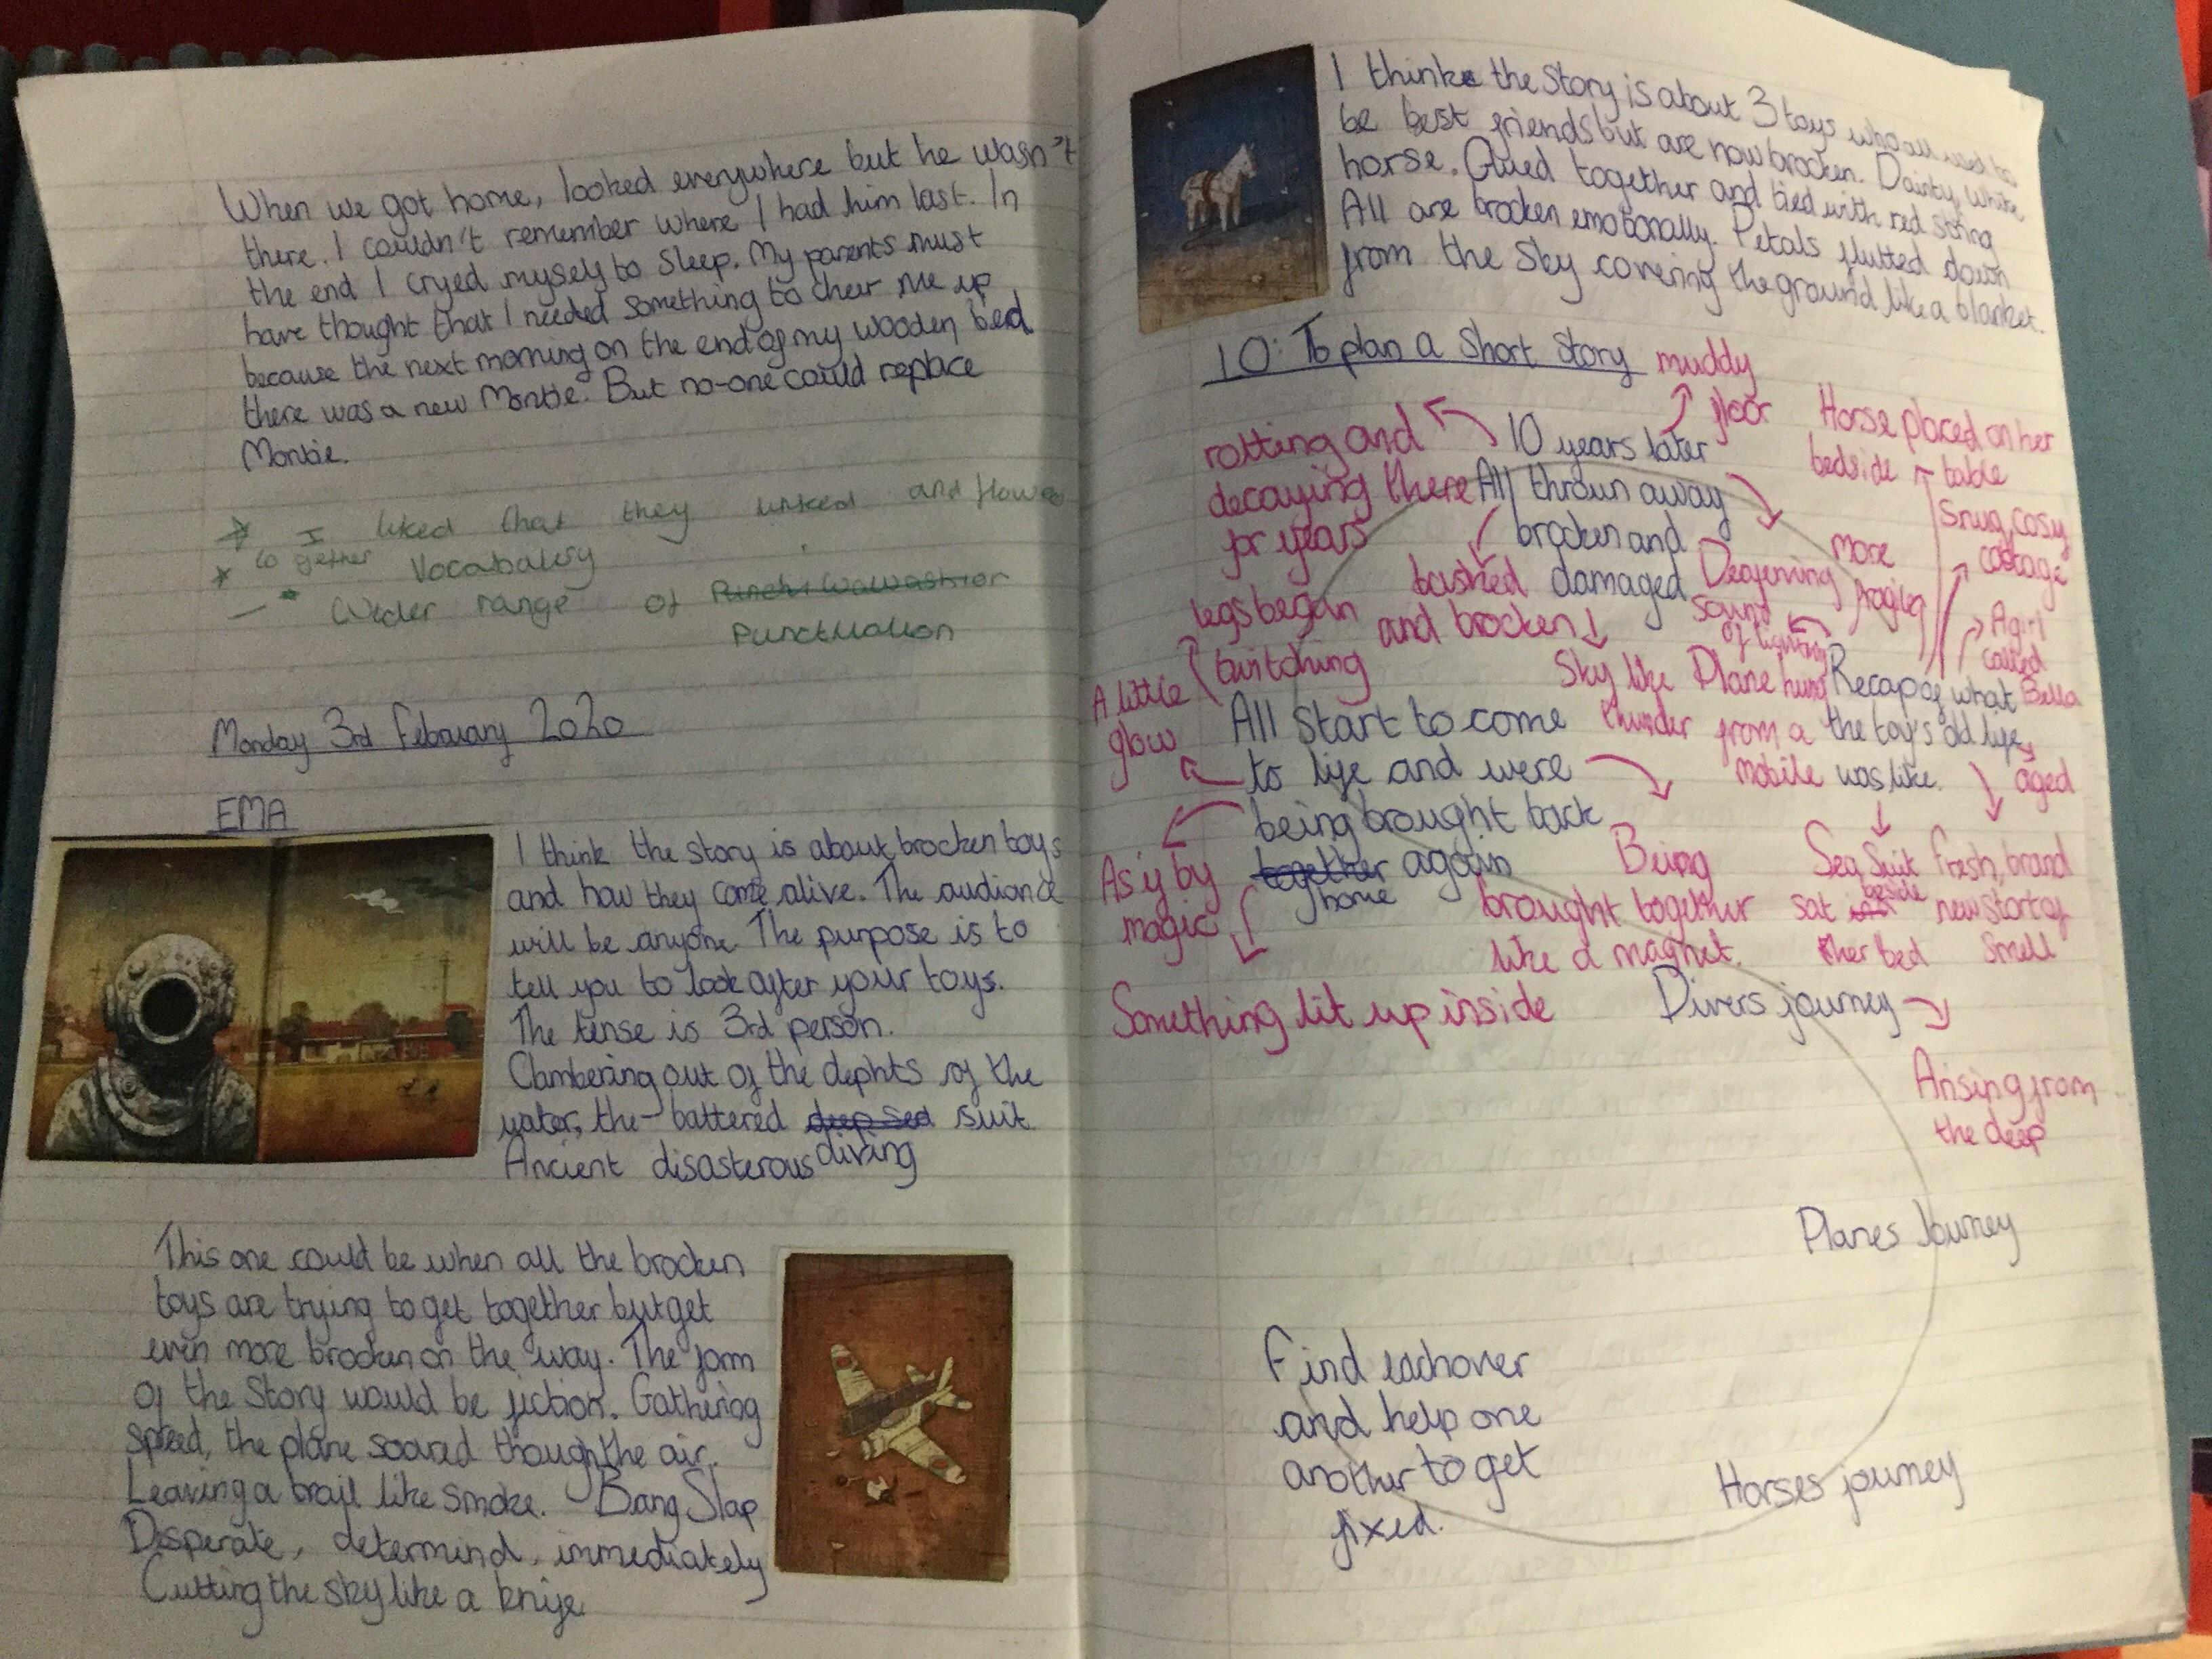 When we got home, looked everywhere but he wasn't
there. I couldn't remember where I had him last. In
the end I cryed myself to sleep. My parents must
have thought that I needed something to cheer me up
because the next morning on the end of my wooden bed
there was a new Montie. But no-one could replace
Montie.
I liked that they linked and flowe
to gether Vocabulary
Wider range of
Punctuation
Monday 3rd February 2020
EMA
I think the story is about brocken toys
and how they come alive. The audience
will be anyone. The purpose is to
tell you to look after your toys.
The tense is 3rd person.
Clambering out of the dephts of the
water, the battered deep sea suit
Ancient disasterous diving
This one could be when all the brocken
toys are trying to get together but get
even more brocken on the way. The form
of the Story would be fiction. Gathering
speed, the plane soared though the air.
Leaving a trail like smoke. Bang Slap
Disperate, determind, immediately
Cutting the sky like a knife
I think the story is about 3 toys who all used to
be best friends but are now brocken. Dainty, white
horse. Glued together and tied with red string
All are brocken emotionally. Petals flutted down
from the sky covering the ground like a blanket.
10: To plan a short story
muddy
floor
rotting and
decaying there
for years
10 years later
All thrown away
brocken and
damaged
Horse placed on her
bedside table
Snug, cosy
cottage
A girl
called
Bella
more
fragiley
Deafening
sound
of lightning
bashed
and brocken
legs began
twitching
Sky like
thunder
Plane hung
from a
mobile
Recap of what
the toy's old life
was like.
aged
A little
glow
All start to come
to life and were
being brought back
together again
home
As if by
magic
Being
brought together
like a magnet.
Sea Suit
sat beside
her bed
fresh, brand
new start of
smell
Something lit up inside
Divers journey
Arising from
the deep
Planes Journey
Horses journey
Find eachover
and help one
another to get
fixed.